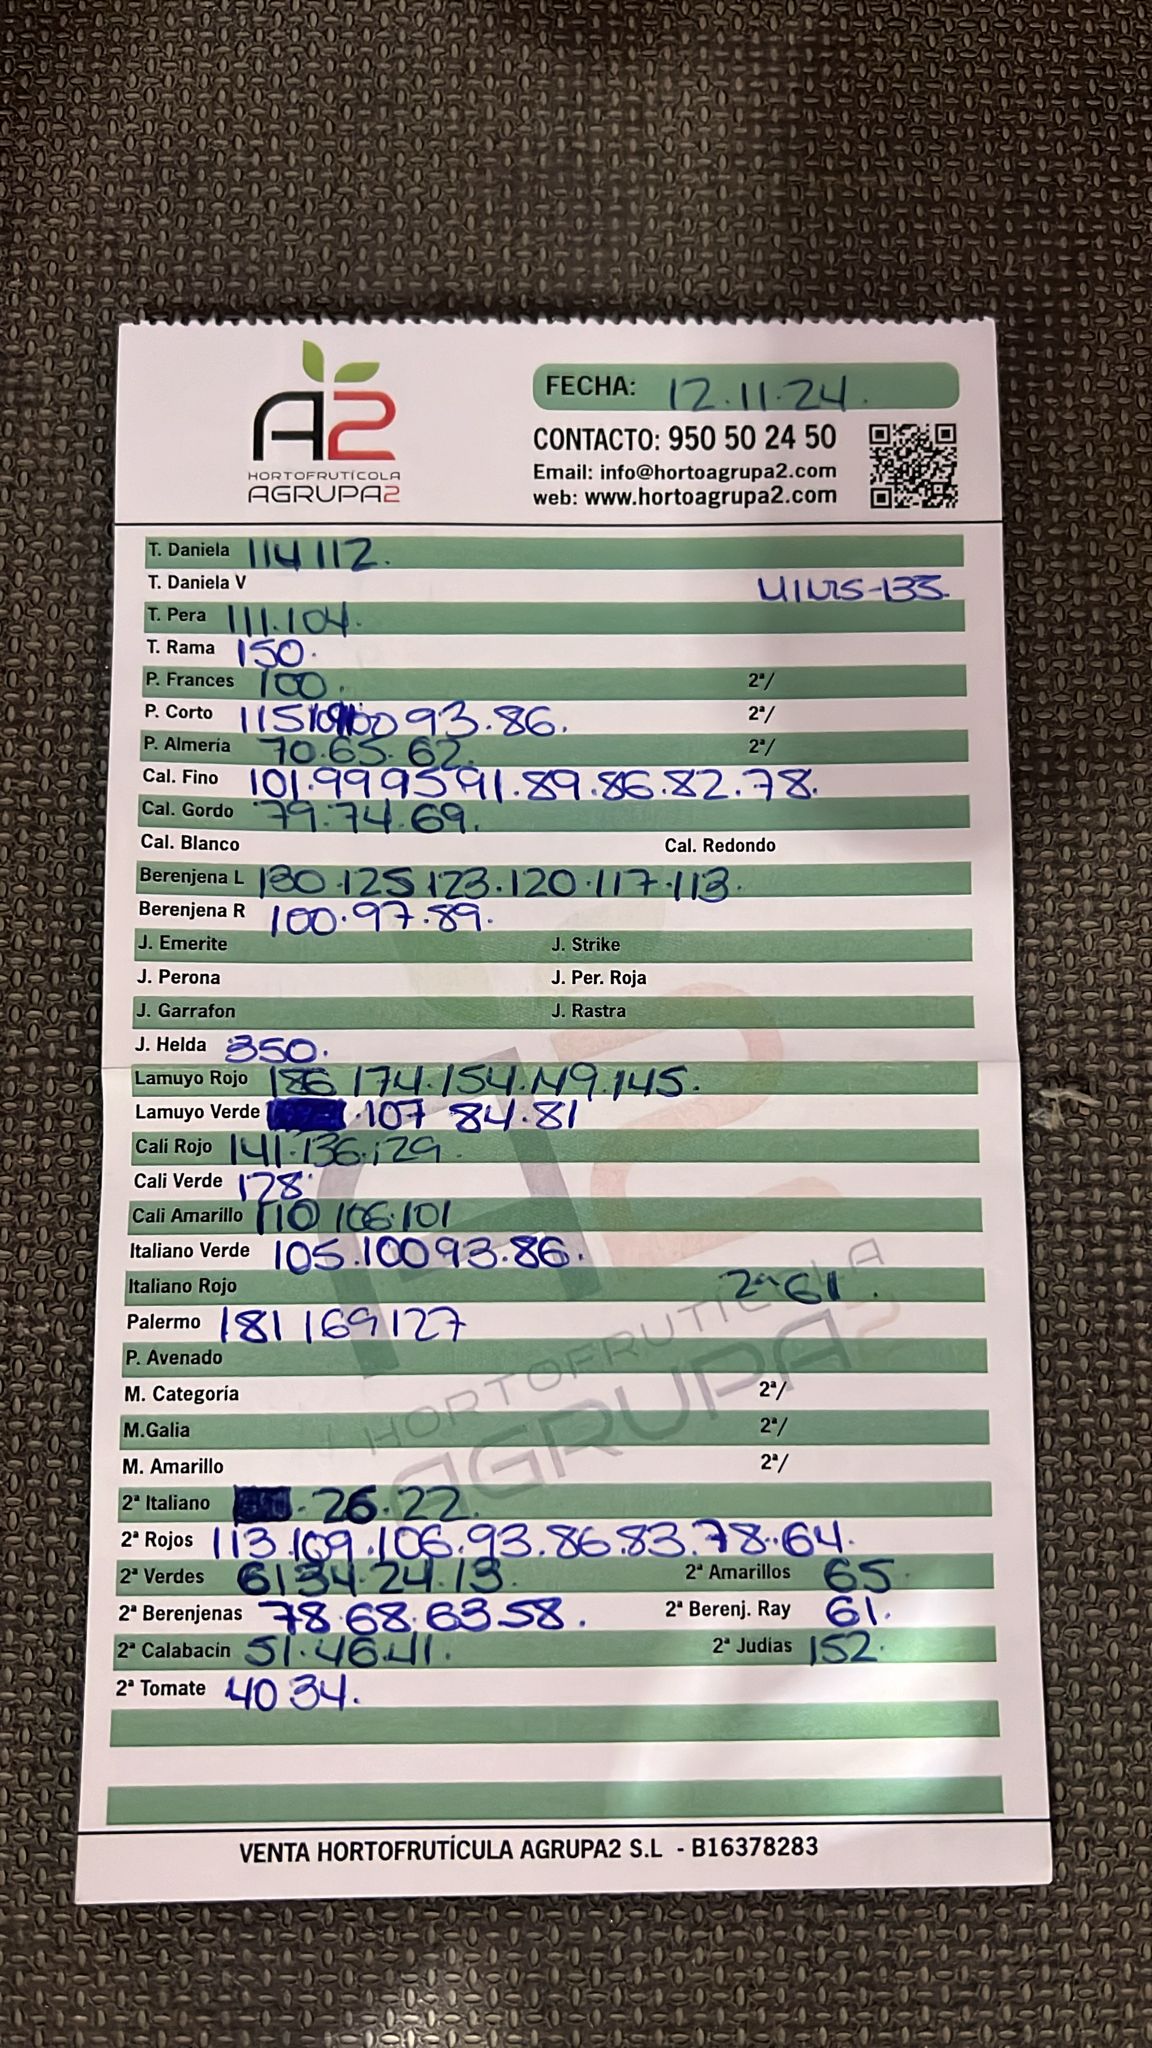 A2
HORTOFRUTÍCOLA
AGRUPA2
FECHA: 12.11.24.
CONTACTO: 950 50 24 50
Email: info@hortoagrupa2.com
web: www.hortoagrupa2.com
T. Daniela 114 112.
T. Daniela V
T. Pera 111.104.
T. Rama 150.
P. Frances 100. 2ª/
P. Corto 115 100 93.86. 2ª/
P. Almería 70.65.62. 2ª/
Cal. Fino 101.99 95 91.89.86.82.78.
Cal. Gordo 79.74.69.
Cal. Blanco Cal. Redondo
Berenjena L 130.125 123.120.117.113.
Berenjena R 100.97.89.
J. Emerite J. Strike
J. Perona J. Per. Roja
J. Garrafon J. Rastra
J. Helda 350.
Lamuyo Rojo 186 174.154.149.145.
Lamuyo Verde .107 84.81
Cali Rojo 141.136.129.
Cali Verde 128.
Cali Amarillo 110 106.101
Italiano Verde 105.100 93.86.
Italiano Rojo 2ª 61.
Palermo 181 169 127
P. Avenado
M. Categoría 2ª/
M.Galia 2ª/
M. Amarillo 2ª/
2ª Italiano .26.22.
2ª Rojos 113.109.106.93.86.83.78.64.
2ª Verdes 61 34.24.13. 2ª Amarillos 65
2ª Berenjenas 78.68.63 58. 2ª Berenj. Ray 61.
2ª Calabacín 51.46.41. 2ª Judías 152.
2ª Tomate 40 34.
HORTOFRUTÍCOLA
AGRUPA2
VENTA HORTOFRUTÍCULA AGRUPA2 S.L - B16378283